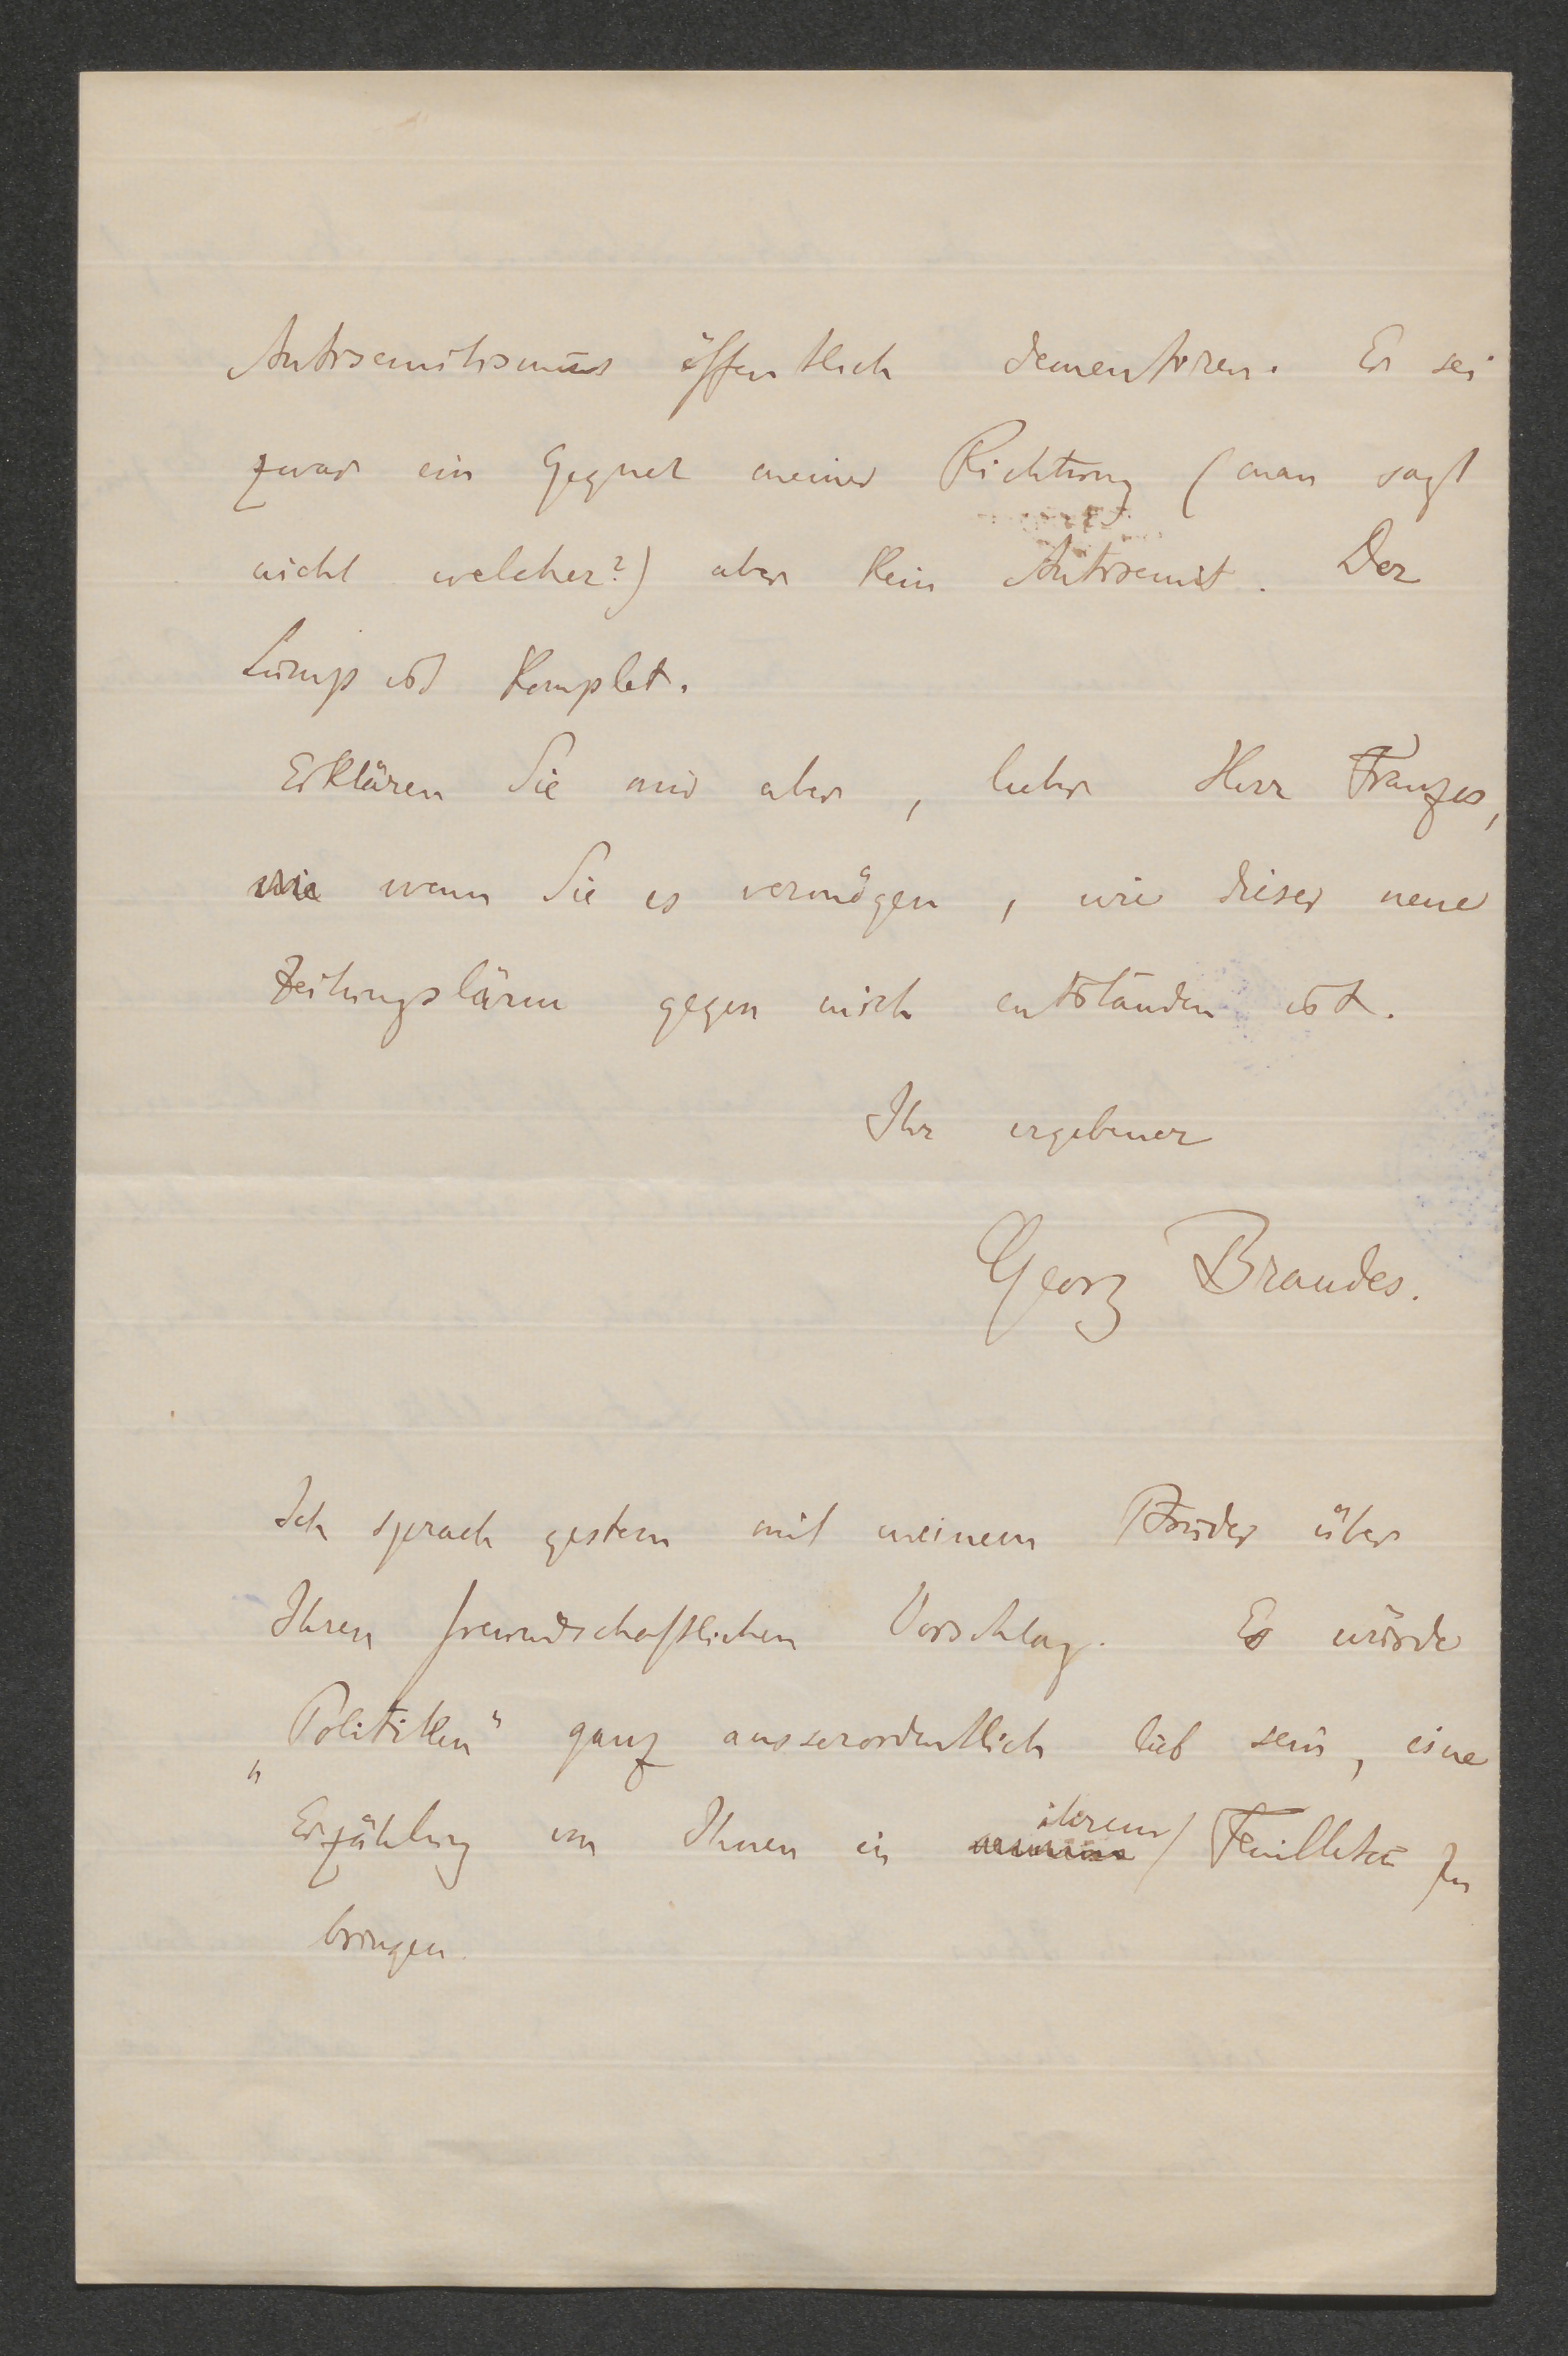 Antisemitismus öffentlich dementiren. Er sei
zwar ein Gegner meiner Richtung (man sagt
nicht welcher?) aber kein Antisemit. Der
Lump ist komplet.
Erklären Sie mir aber, lieber Herr Franzos,
wie wenn Sie es vermögen, wie dieser neue
Zeitungslärm gegen mich entstanden ist.
Ihr ergebener
Georg Brandes.
Ich sprach gestern mit meinem Bruder über
Ihren freundschaftlichen Vorschlag. Es würde
„Politiken" ganz ausserordentlich lieb sein, eine
Erzählung von Ihnen in ihrem Feuilleton zu
bringen.